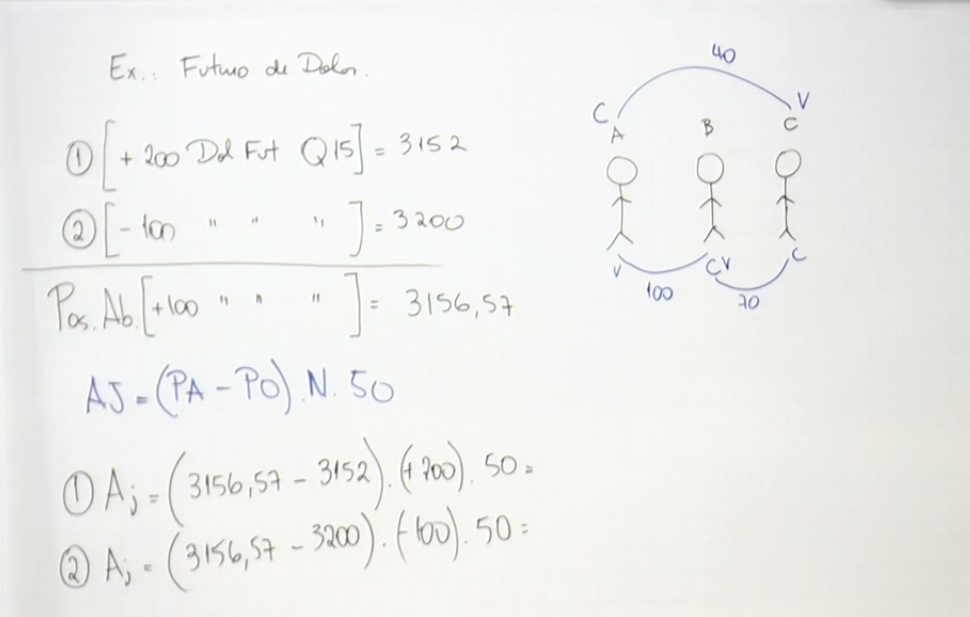 Ex.: Futuro de Dolar.
① [+ 200 Dol Fut Q15] = 3152
② [- 100 " " "] = 3200
Pos. Ab. [+100 " " "] = 3156,57
AJ = (PA - PO). N. 50
① Aj = (3156,57 - 3152).(+200). 50 =
② Aj = (3156,57 - 3200).(-100). 50 =
40
C V
A B C
V CV C
100 70